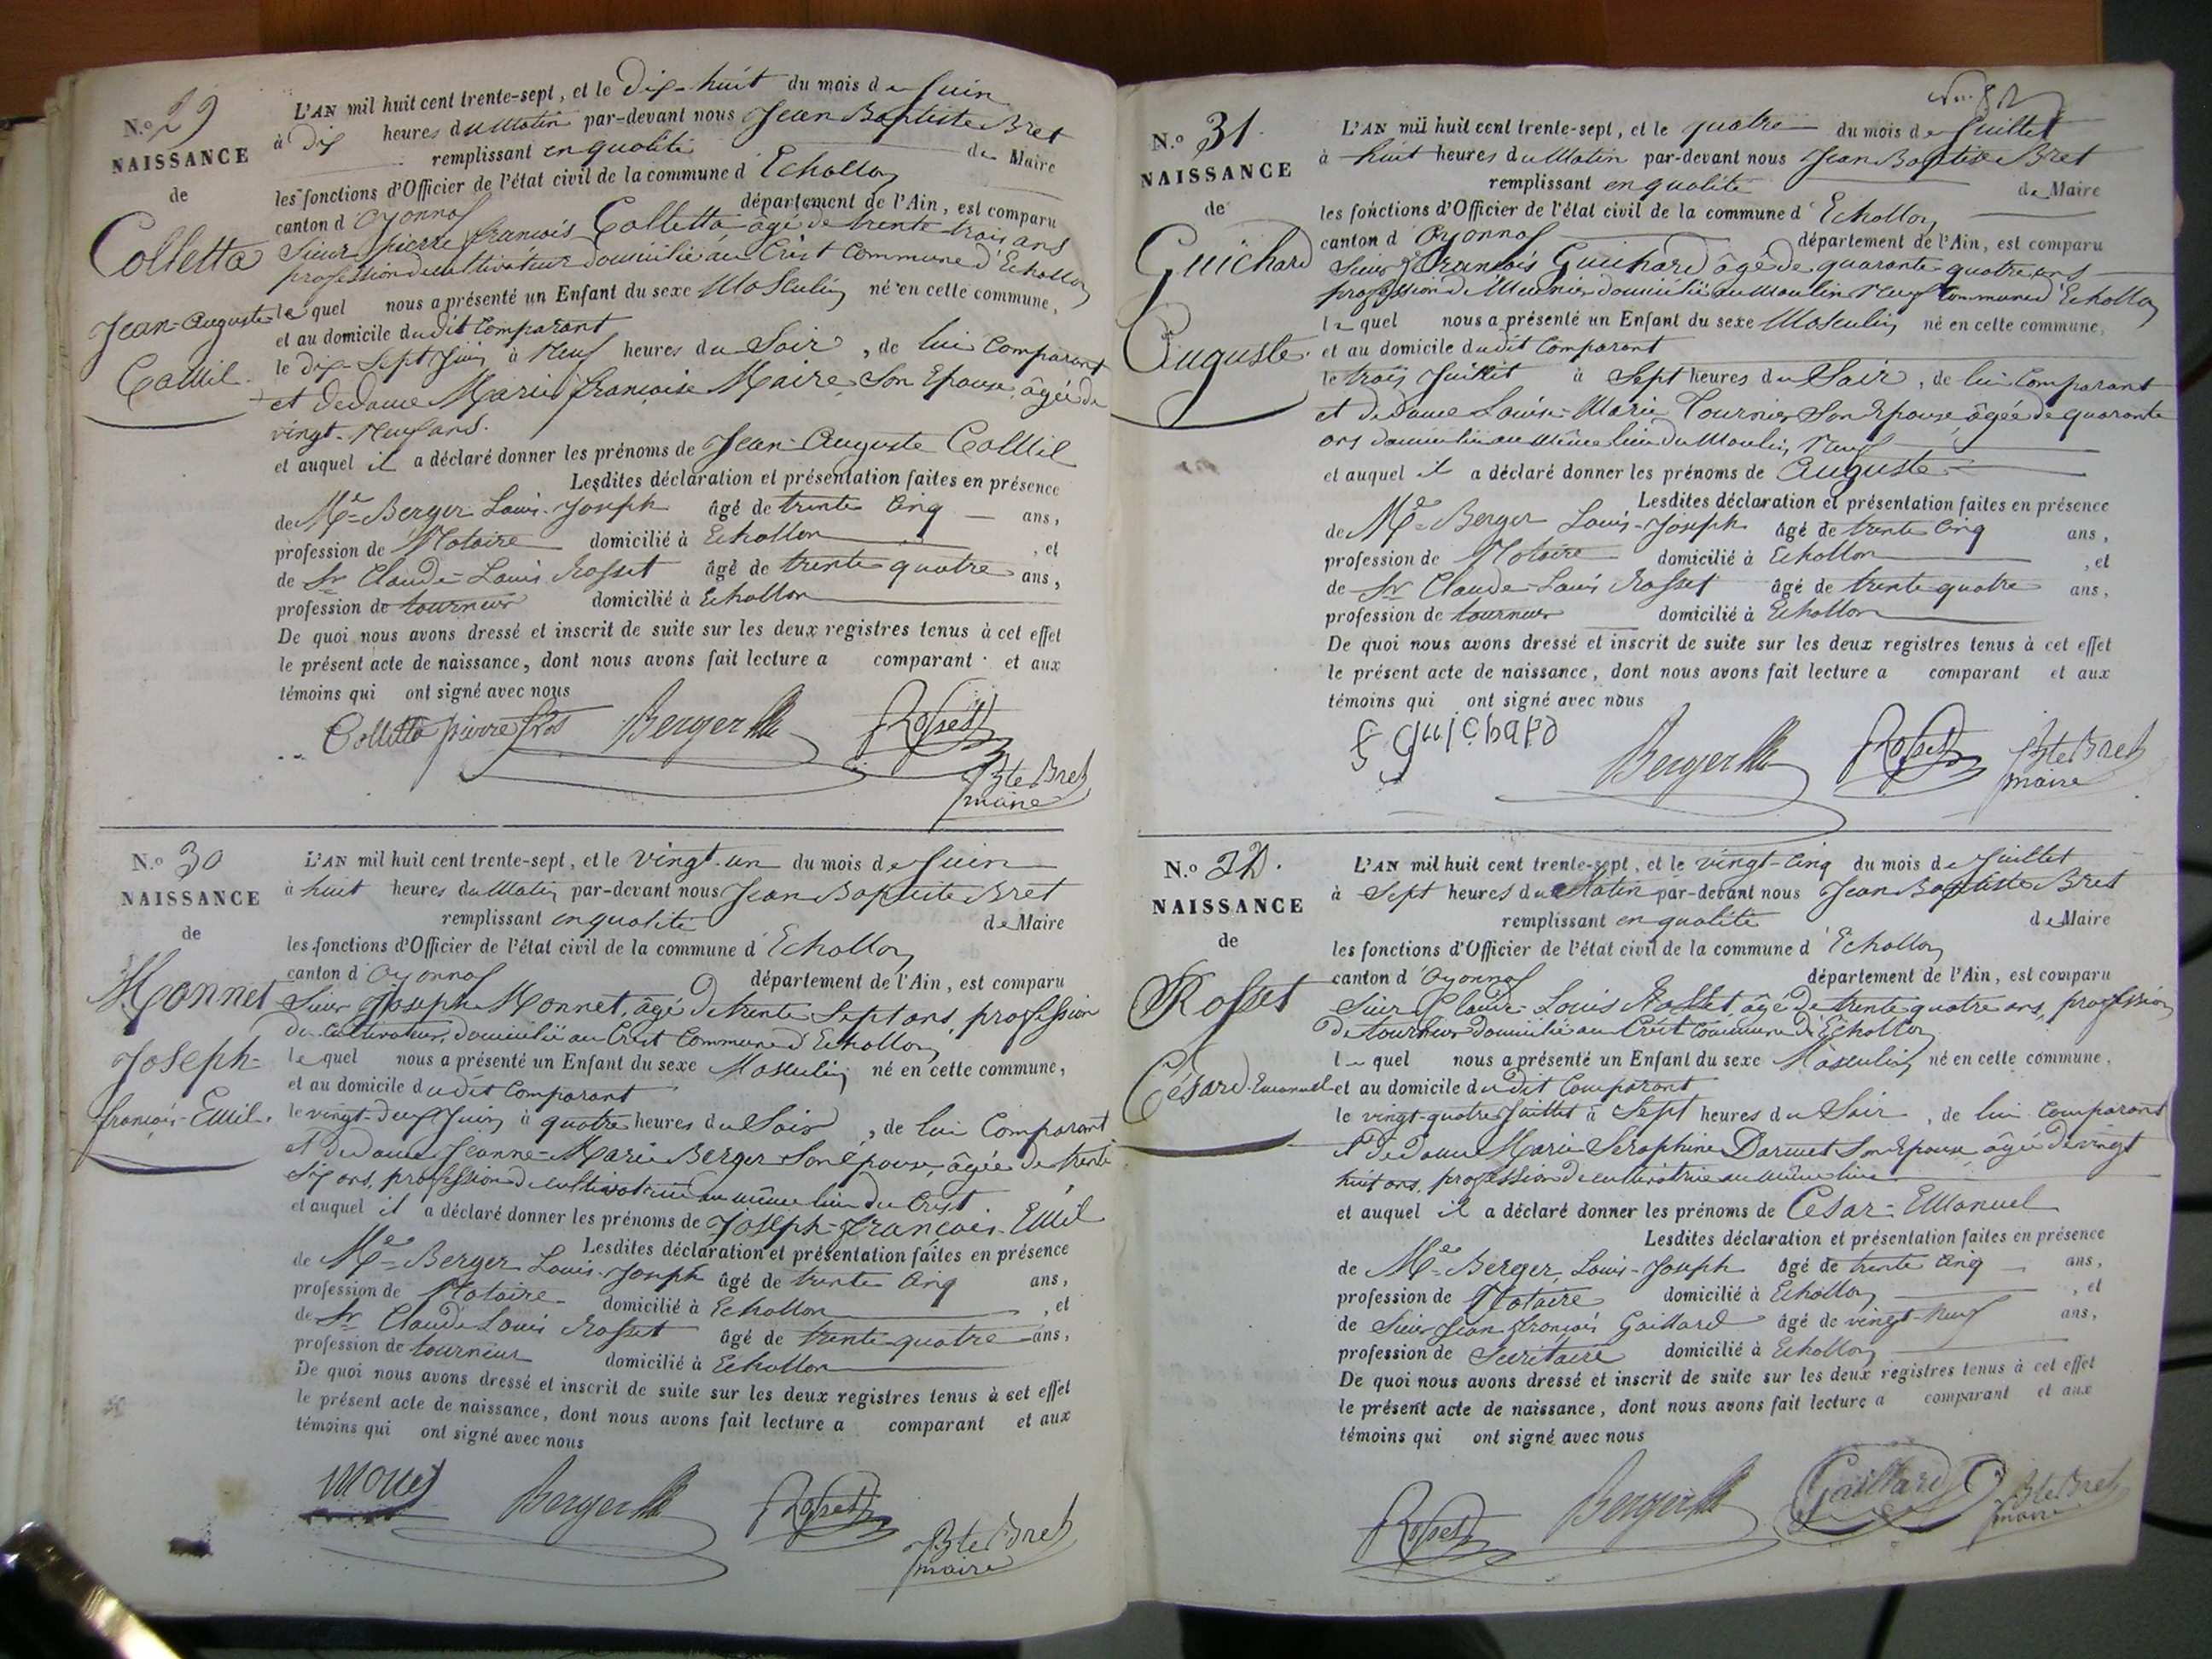 N.º 29
NAISSANCE
de
Colletta
Jean-Auguste
Camil.
L'AN mil huit cent trente-sept, et le Dix-huit du mois de Juin
à Dix heures du Matin par-devant nous Jean Baptiste Bret
remplissant en qualité de Maire
les fonctions d'Officier de l'état civil de la commune d'Echallon
canton d'Oyonnax département de l'Ain, est comparu
Sieur pierre françois Colletta âgé de trente trois ans
profession de cultivateur domicilié au Crêt Commune d'Echallon
le quel nous a présenté un Enfant du sexe Masculin né en cette commune,
et au domicile dudit Comparant
le dix Sept Juin à Neuf heures du Soir, de lui Comparant
et de dame Marie françoise Maire Son Epouse, âgée de
vingt-Neuf ans.
et auquel il a déclaré donner les prénoms de Jean-Auguste Camil
Lesdites déclaration et présentation faites en présence
de Me Berger Louis-Joseph âgé de trente Cinq ans,
profession de Notaire domicilié à Echallon, et
de Sr Claude-Louis Rosset âgé de trente quatre ans,
profession de tourneur domicilié à Echallon
De quoi nous avons dressé et inscrit de suite sur les deux registres tenus à cet effet
le présent acte de naissance, dont nous avons fait lecture a comparant et aux
témoins qui ont signé avec nous
Colletta pierre frois Berger Rosset
Bte Bret
maire
N.º 30
NAISSANCE
de
Monnet
Joseph-
françois-Emil.
L'AN mil huit cent trente-sept, et le vingt-un du mois de Juin
à huit heures du Matin par-devant nous Jean Baptiste Bret
remplissant en qualité de Maire
les fonctions d'Officier de l'état civil de la commune d'Echallon
canton d'Oyonnax département de l'Ain, est comparu
Sieur Joseph Monnet, âgé de trente Sept ans, profession
de Cultivateur, domicilié au Crest Commune d'Echallon
le quel nous a présenté un Enfant du sexe Masculin né en cette commune,
et au domicile dudit Comparant
le vingt-deux Juin à quatre heures du Soir, de lui Comparant
et de dame Jeanne-Marie Berger Son épouse, âgée de trente
Six ans, profession de cultivatrice au même lieu du Crest
et auquel il a déclaré donner les prénoms de Joseph-françois-Emil
Lesdites déclaration et présentation faites en présence
de Me Berger Louis-Joseph âgé de trente Cinq ans,
profession de Notaire domicilié à Echallon, et
de Sr Claude Louis Rosset âgé de trente-quatre ans,
profession de tourneur domicilié à Echallon
De quoi nous avons dressé et inscrit de suite sur les deux registres tenus à cet effet
le présent acte de naissance, dont nous avons fait lecture a comparant et aux
témoins qui ont signé avec nous
Berger Rosset
Bte Bret
maire
N.º 31.
NAISSANCE
de
Guichard
Auguste.
L'AN mil huit cent trente-sept, et le quatre du mois de Juillet
à huit heures du Matin par-devant nous Jean Baptiste Bret
remplissant en qualité de Maire
les fonctions d'Officier de l'état civil de la commune d'Echallon
canton d'Oyonnax département de l'Ain, est comparu
Sieur François Guichard âgé de quarante quatre ans
profession de Meunier domicilié au Moulin Neuf Commune d'Echallon
le quel nous a présenté un Enfant du sexe Masculin né en cette commune,
et au domicile dudit Comparant
le trois Juillet à Sept heures du Soir, de lui Comparant
et de Dame Louise-Marie Tournier Son Epouse, âgée de quarante
ans domiciliée au même lieu du Moulin Neuf
et auquel il a déclaré donner les prénoms de Auguste
Lesdites déclaration et présentation faites en présence
de Me Berger Louis-Joseph âgé de trente Cinq ans,
profession de Notaire domicilié à Echallon, et
de Sr Claude-Louis Rosset âgé de trente quatre ans,
profession de tourneur domicilié à Echallon
De quoi nous avons dressé et inscrit de suite sur les deux registres tenus à cet effet
le présent acte de naissance, dont nous avons fait lecture a comparant et aux
témoins qui ont signé avec nous
F guichard
Berger Rosset Bte Bret
maire
N.º 32.
NAISSANCE
de
Rosset
Césard-Emanuel
L'AN mil huit cent trente-sept, et le vingt-Cinq du mois de Juillet
à Sept heures du Matin par-devant nous Jean Baptiste Bret
remplissant en qualité de Maire
les fonctions d'Officier de l'état civil de la commune d'Echallon
canton d'Oyonnax département de l'Ain, est comparu
Sieur Claude-Louis Rosset, âgé de trente quatre ans, profession
de tourneur domicilié au Crest Commune d'Echallon
le quel nous a présenté un Enfant du sexe Masculin né en cette commune,
et au domicile dudit Comparant
le vingt-quatre Juillet à Sept heures du Soir, de lui Comparant
et de dame Marie Séraphine Darmet Son Epouse, âgée de vingt
huit ans, profession de cultivatrice au même lieu
et auquel il a déclaré donner les prénoms de César-Emanuel
Lesdites déclaration et présentation faites en présence
de Me Berger, Louis-Joseph âgé de trente Cinq ans,
profession de Notaire domicilié à Echallon, et
de Sieur Jean françois Gaillard âgé de vingt-Neuf ans,
profession de Secrétaire domicilié à Echallon
De quoi nous avons dressé et inscrit de suite sur les deux registres tenus à cet effet
le présent acte de naissance, dont nous avons fait lecture a comparant et aux
témoins qui ont signé avec nous
Rosset Berger Gaillard Bte Bret
maire